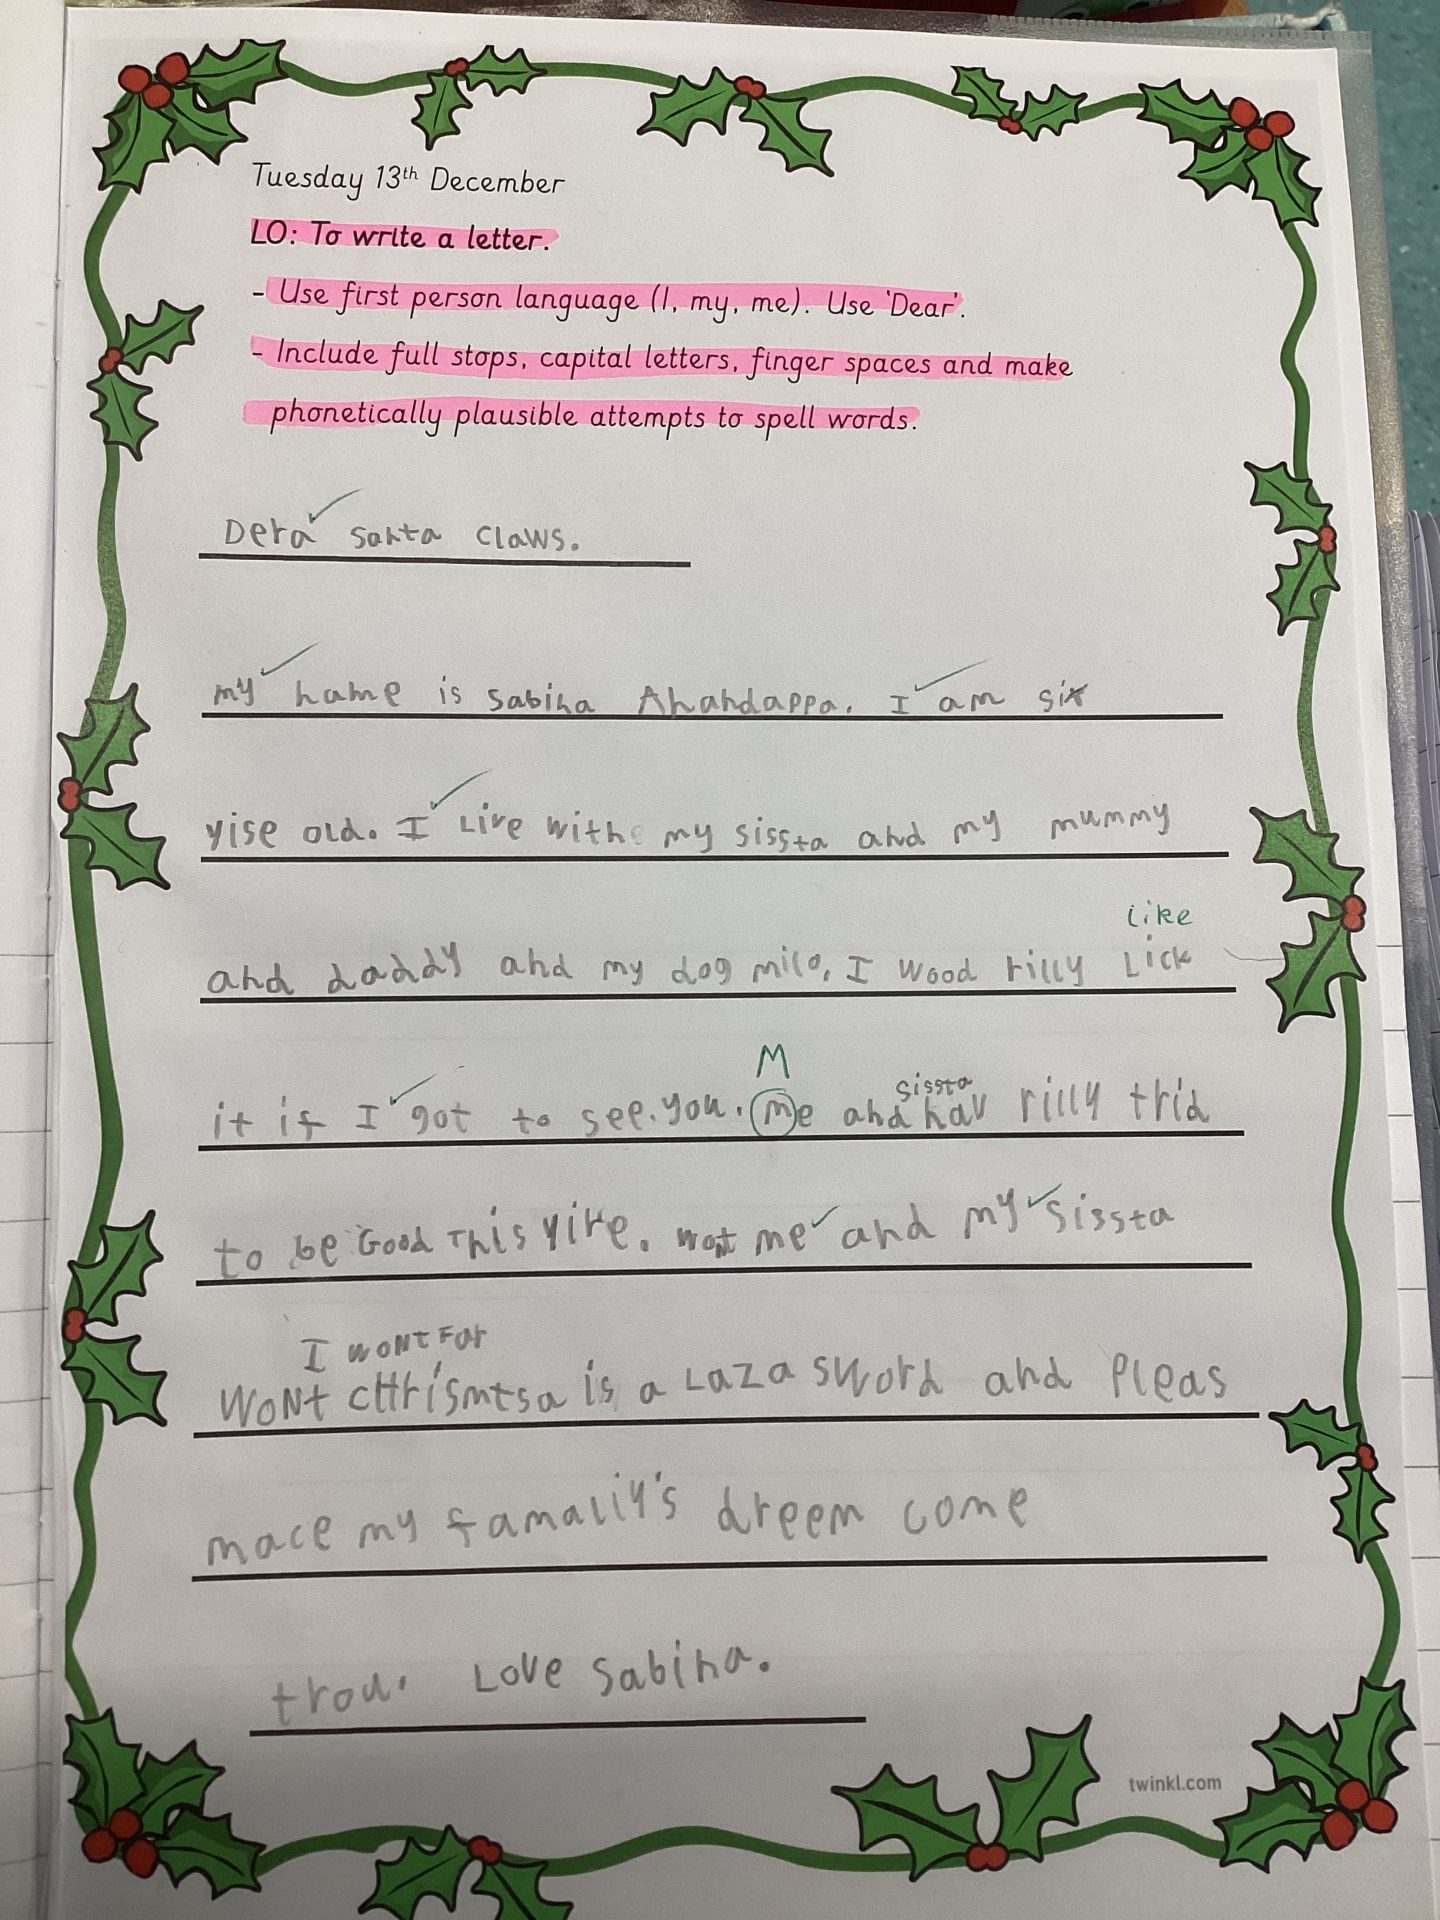 Tuesday 13th December
LO: To write a letter.
- Use first person language (I, my, me). Use 'Dear'.
- Include full stops, capital letters, finger spaces and make
phonetically plausible attempts to spell words.
Dera santa claws.
my name is sabina Anandappa. I am six
yise old. I Live withe my sissta and my mummy
like
and daddy and my dog milo. I wood rilly Lick
M
sissta
it if I got to see.you. me and hav rilly trid
to be Good This yire. wont me and my sissta
I woNt For
WoNt cHrismtsa is a LAZA sword and Pleas
mace my famaliy's dreem come
trou. Love sabina.
twinkl.com